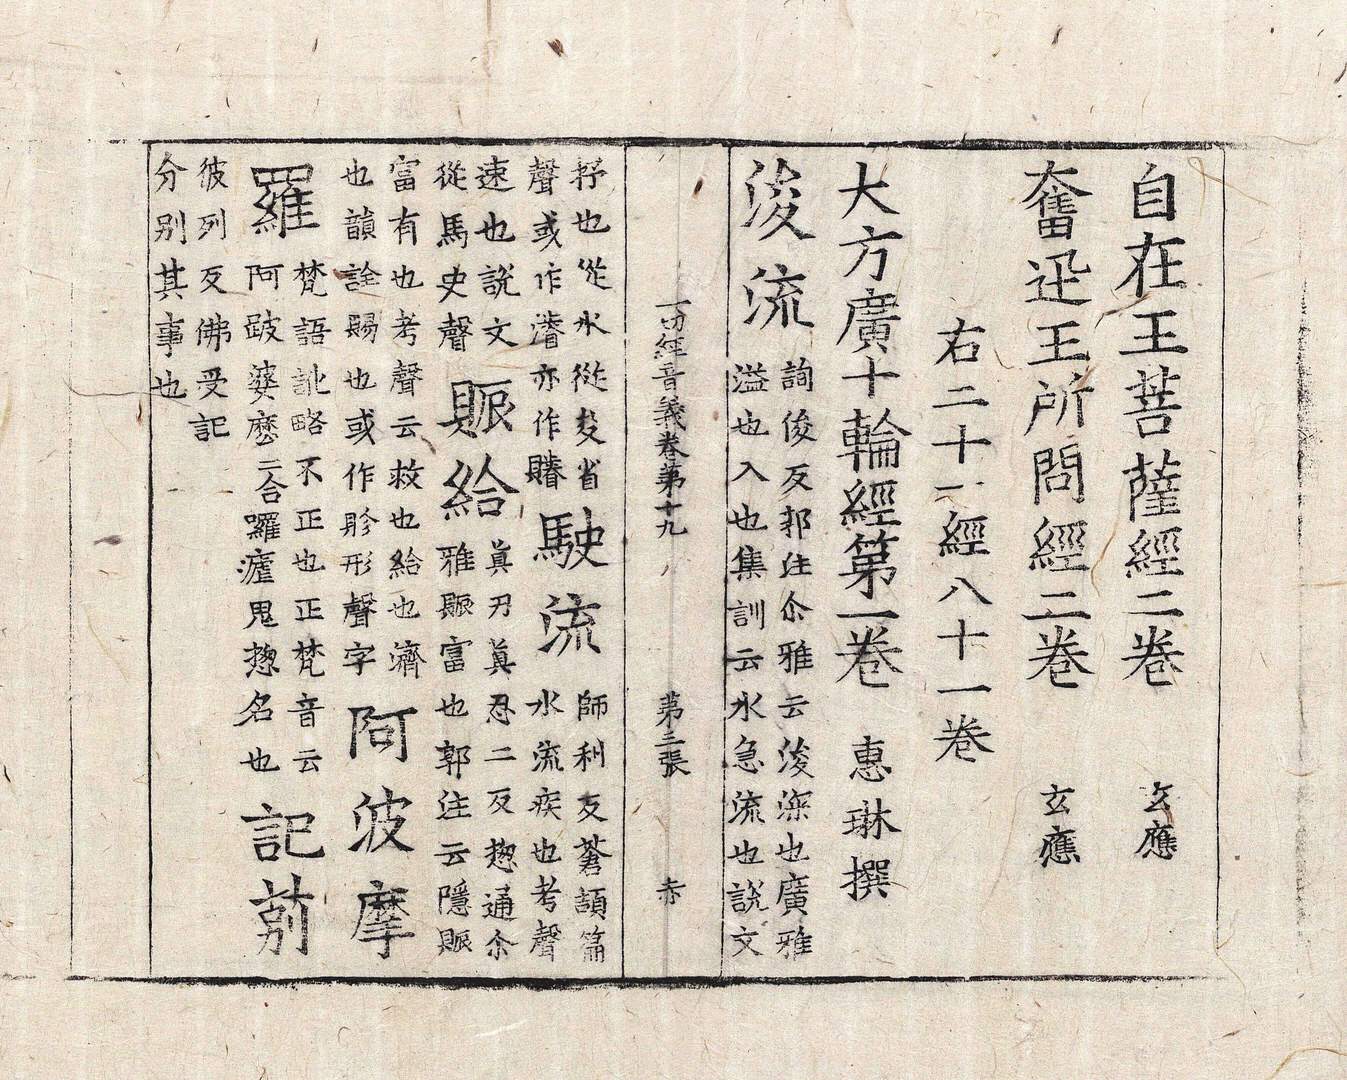 自在王菩薩經二卷 玄應
奮迅王所問經二卷 玄應
右二十一經八十一卷
大方廣十輪經第一卷 惠琳撰
浚流
詢俊反郭注尒雅云浚深也廣雅
溢也入也集訓云水急流也說文
一切經音義卷第十九 第三張 赤
抒也從水從夋省
聲或作濬亦作㻸
駛流
師利反蒼頡篇
水流疾也考聲
速也說文
從馬史聲
賑給
眞刃眞忍二反揔通尒
雅賑富也郭注云隱賑
富有也考聲云救也給也濟
也韻詮賜也或作賑形聲字
阿波摩
羅
梵語訛略不正也正梵音云
阿跛婆麽二合囉瘧鬼揔名也
記莂
彼列反佛受記
分別其事也